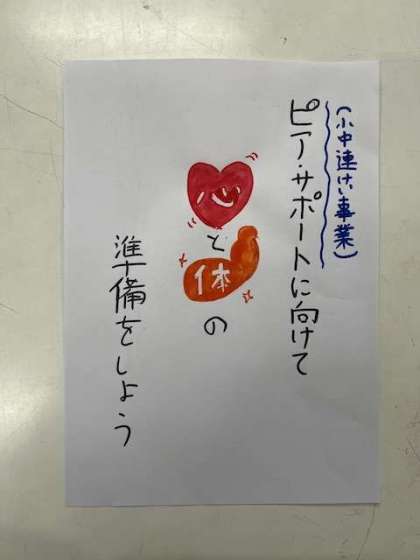 (小中連けい事業)
ピア・サポートに向けて
心と体の
準備をしよう